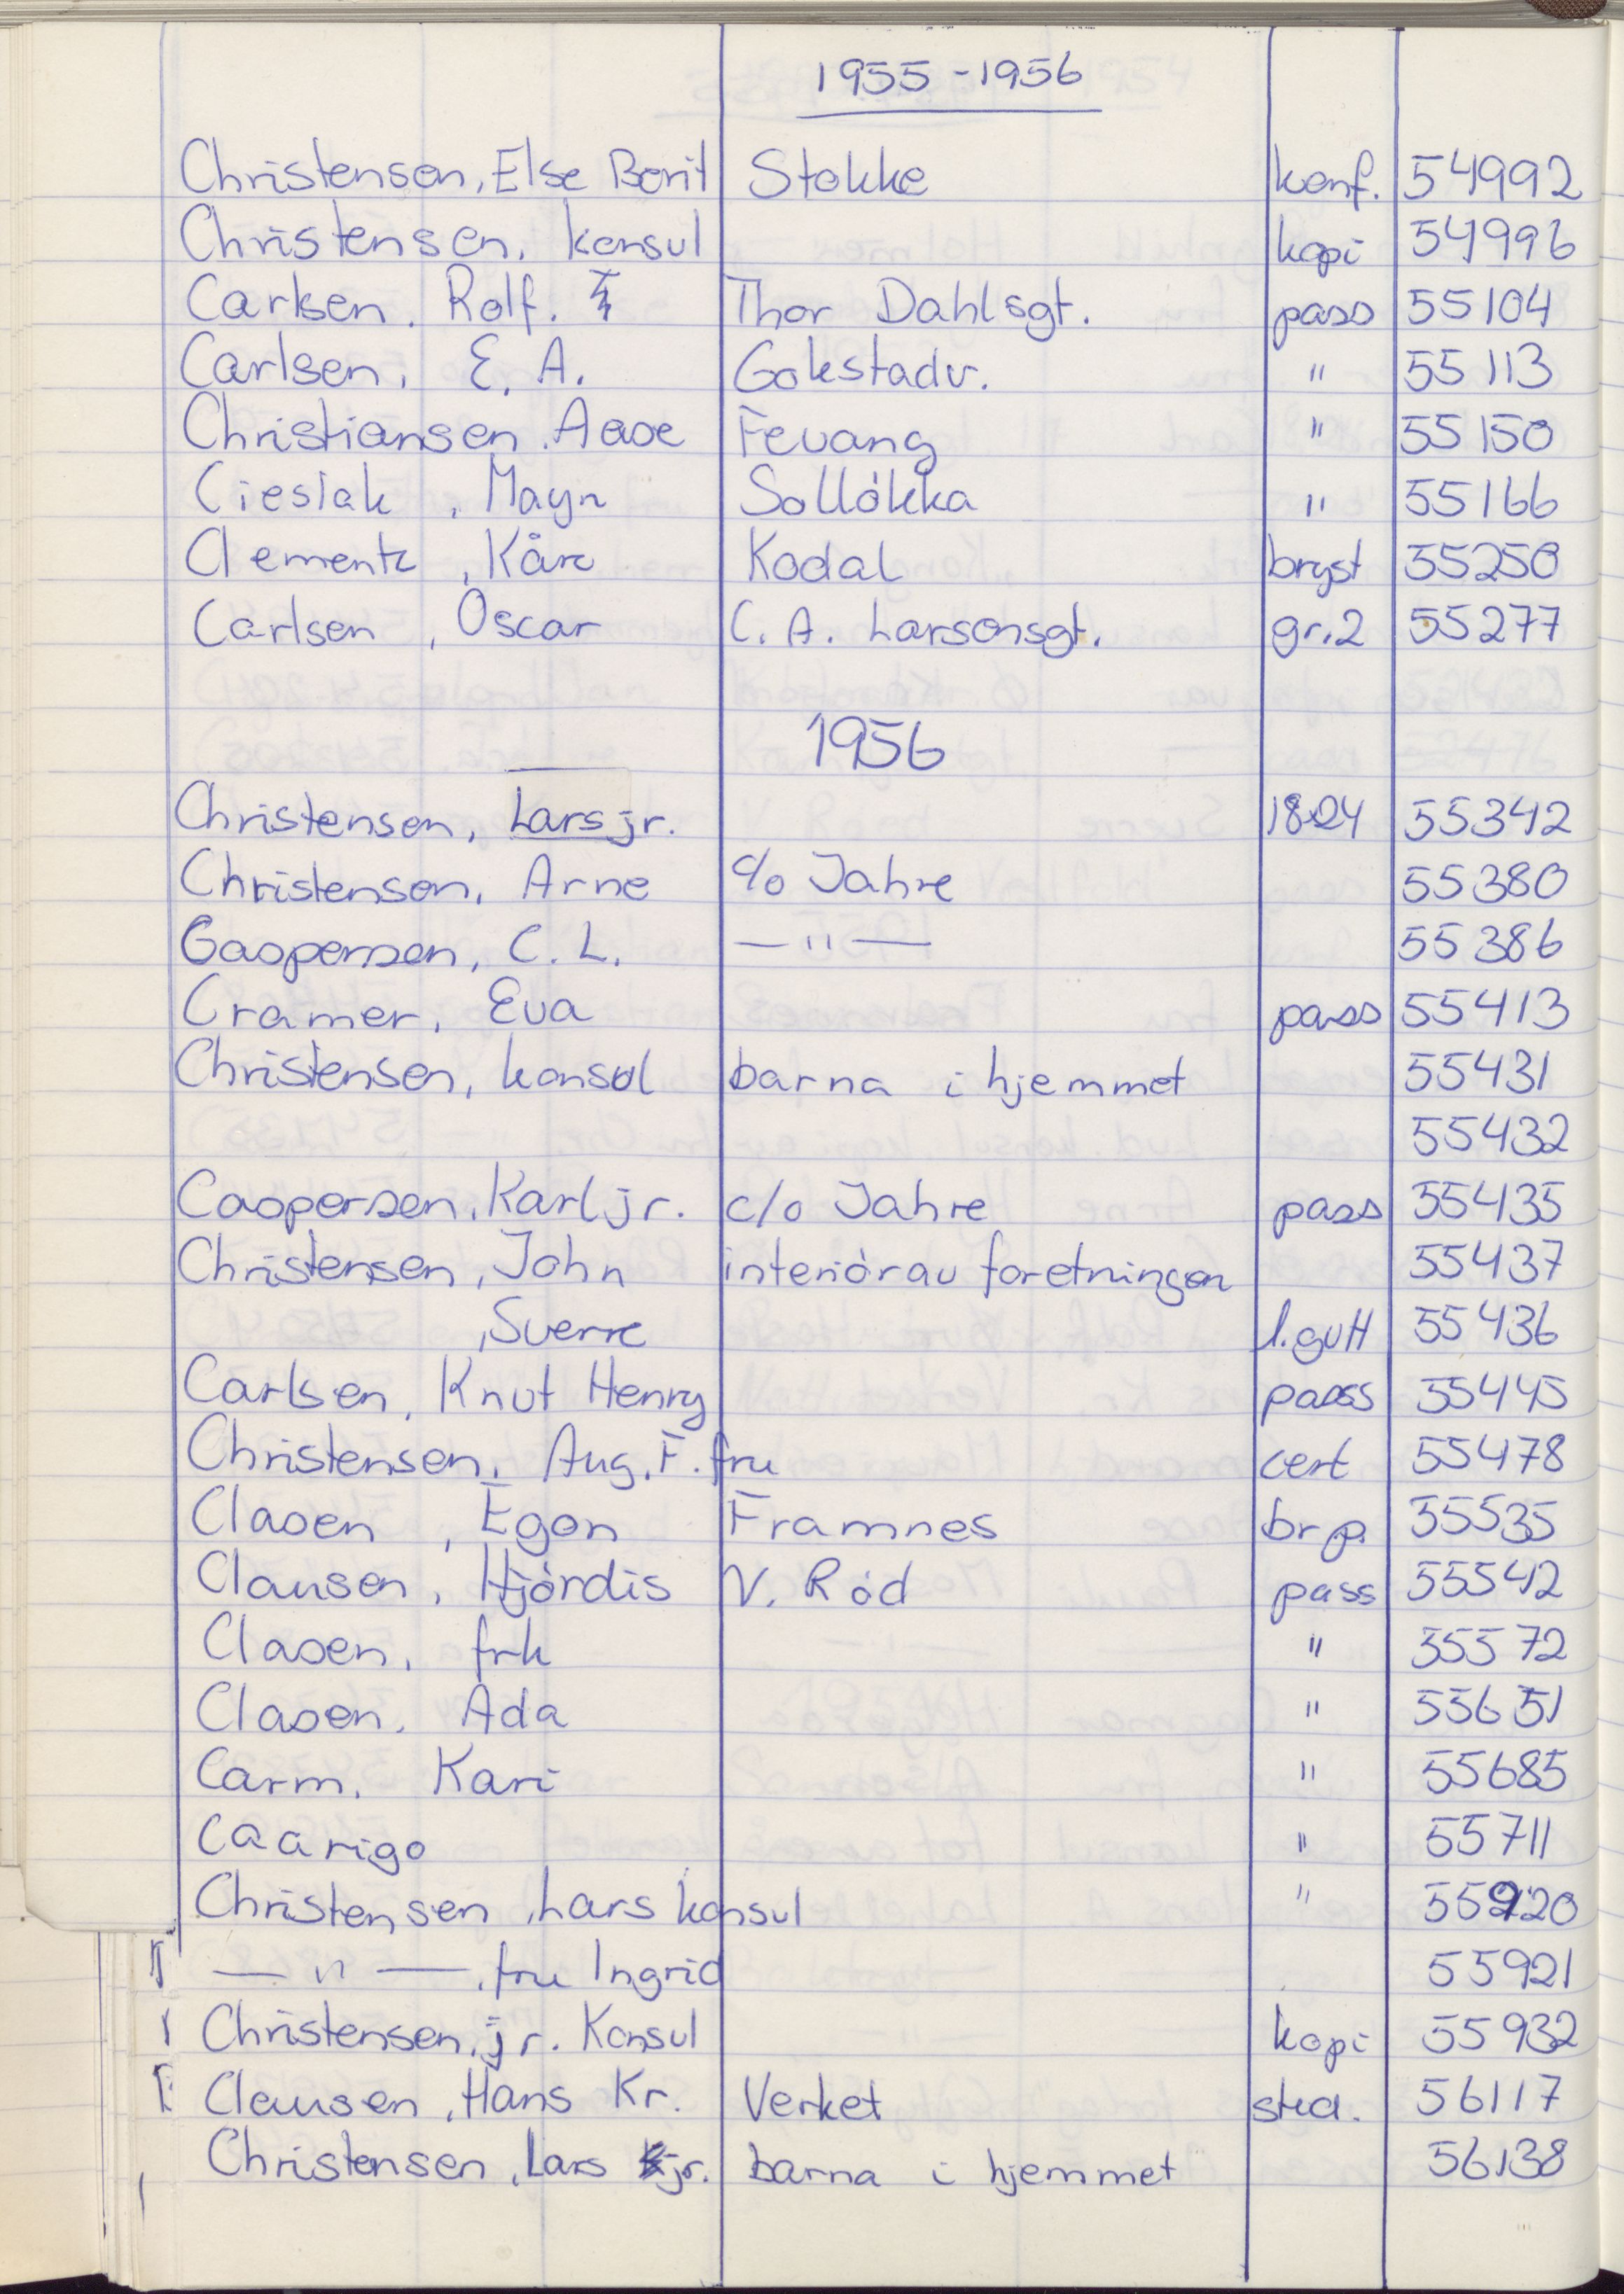 1955 - 1956
Christensen, Else Berit Stokke konf. 54992
Christensen, konsul kopi 54996
Carlsen, Rolf. Thor Dahlsgt. pass 55104
Carlsen, E. A. Gokstadv. " 55113
Christiansen, Aase Fevang " 55150
Cieslak, Mayn Solløkka " 55166
Clementz, Kåre Kodal bryst 55250
Carlsen, Oscar C. A. Larsensgt. gr.2 55277
1956
Christensen, Lars jr. 18x24 55342
Christensen, Arne c/o Jahre 55380
Caspersen, C. L. — " — 55386
Cramer, Eva pass 55413
Christensen, konsul barna i hjemmet 55431
55432
Caspersen, Karl jr. c/o Jahre pass 55435
Christensen, John interiør av foretningen 55437
, Sverre l.gutt 55436
Carlsen, Knut Henry pass 55445
Christensen, Aug. F. fru cert 55478
Clasen, Egon Framnes br p. 55535
Clausen, Hjørdis V. Rød pass 55542
Clasen, frk " 55572
Clasen, Ada " 55651
Carm, Kari " 55685
Caarigo " 55711
Christensen, Lars konsul " 55920
— " —, fru Ingrid 55921
Christensen, jr. Konsul kopi 55932
Clausen, Hans Kr. Verket stud. 56117
Christensen, Lars jr. barna i hjemmet 56138